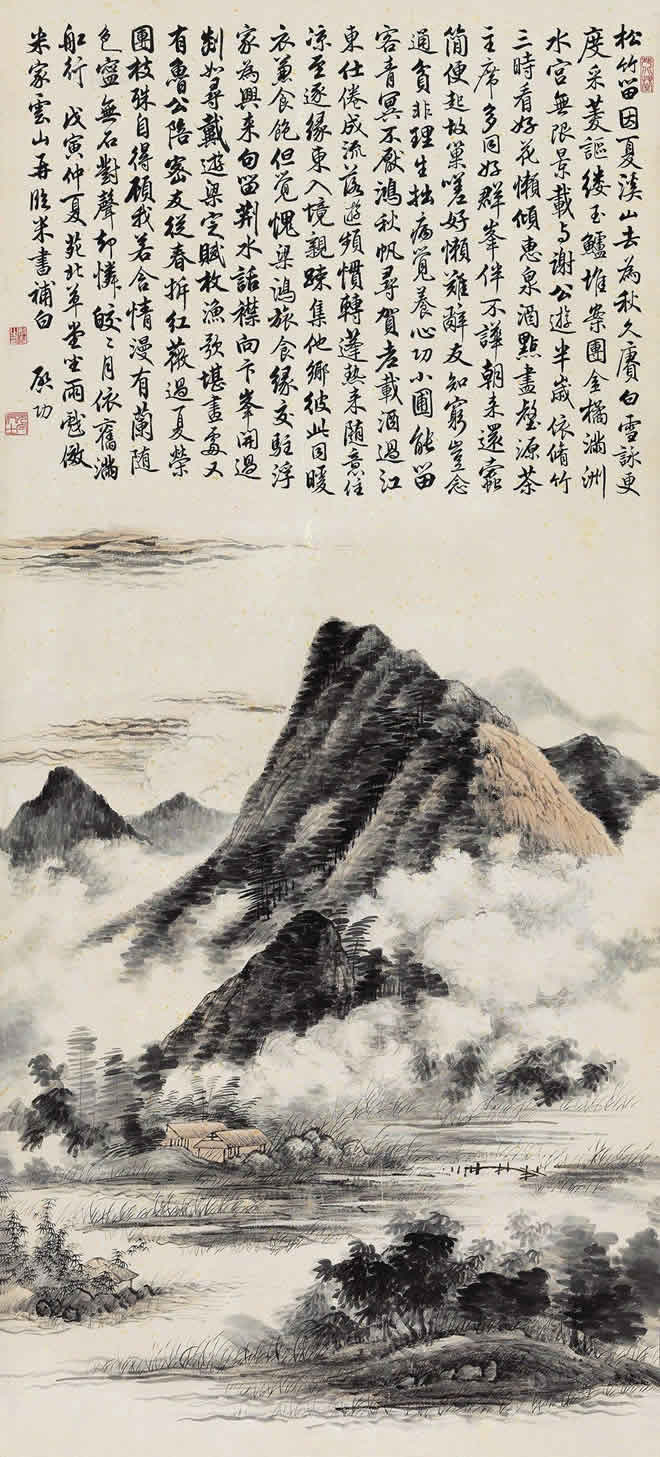 松竹留因夏溪山去為秋久賡白雪詠更
度采菱謳縷玉鱸堆案團金橘滿洲
水宮無限景載与謝公遊半歲依脩竹
三時看好花懶傾惠泉酒點盡壑源茶
主席多同好群峯伴不譁朝来還蠹
簡便起故巢嗟好懶難辭友知窮豈念
通貧非理生拙病覺養心功小圃能留
客青冥不厭鴻秋帆尋賀老載酒過江
東仕倦成流落遊頻慣轉蓬熱来随意住
凉至逐緣東入境親踈集他鄉彼此同暖
衣兼食飽但覺愧梁鴻旅食緣交駐浮
家為興来句留荆水話襟向卞峯開過
剡如尋戴遊梁定賦枚漁歌堪畫處又
有魯公陪密友從春拆紅薇過夏榮
團枝殊自得顧我若含情漫有蘭随
色寧無石對聲却憐皎〻月依舊滿
船行 戊寅仲夏苑北草堂坐雨戲倣
米家雲山再臨米書補白 啟功